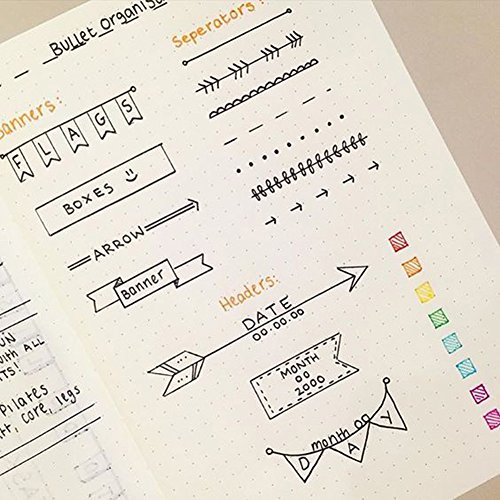 Bullet Organis
Seperators:
Banners:
FLAGS
BOXES
ARROW
Banner
Headers:
DATE
00.00.00
MONTH
00
2000
month 00
DAY
UN
with ALL
TS!
Pilates
core, legs